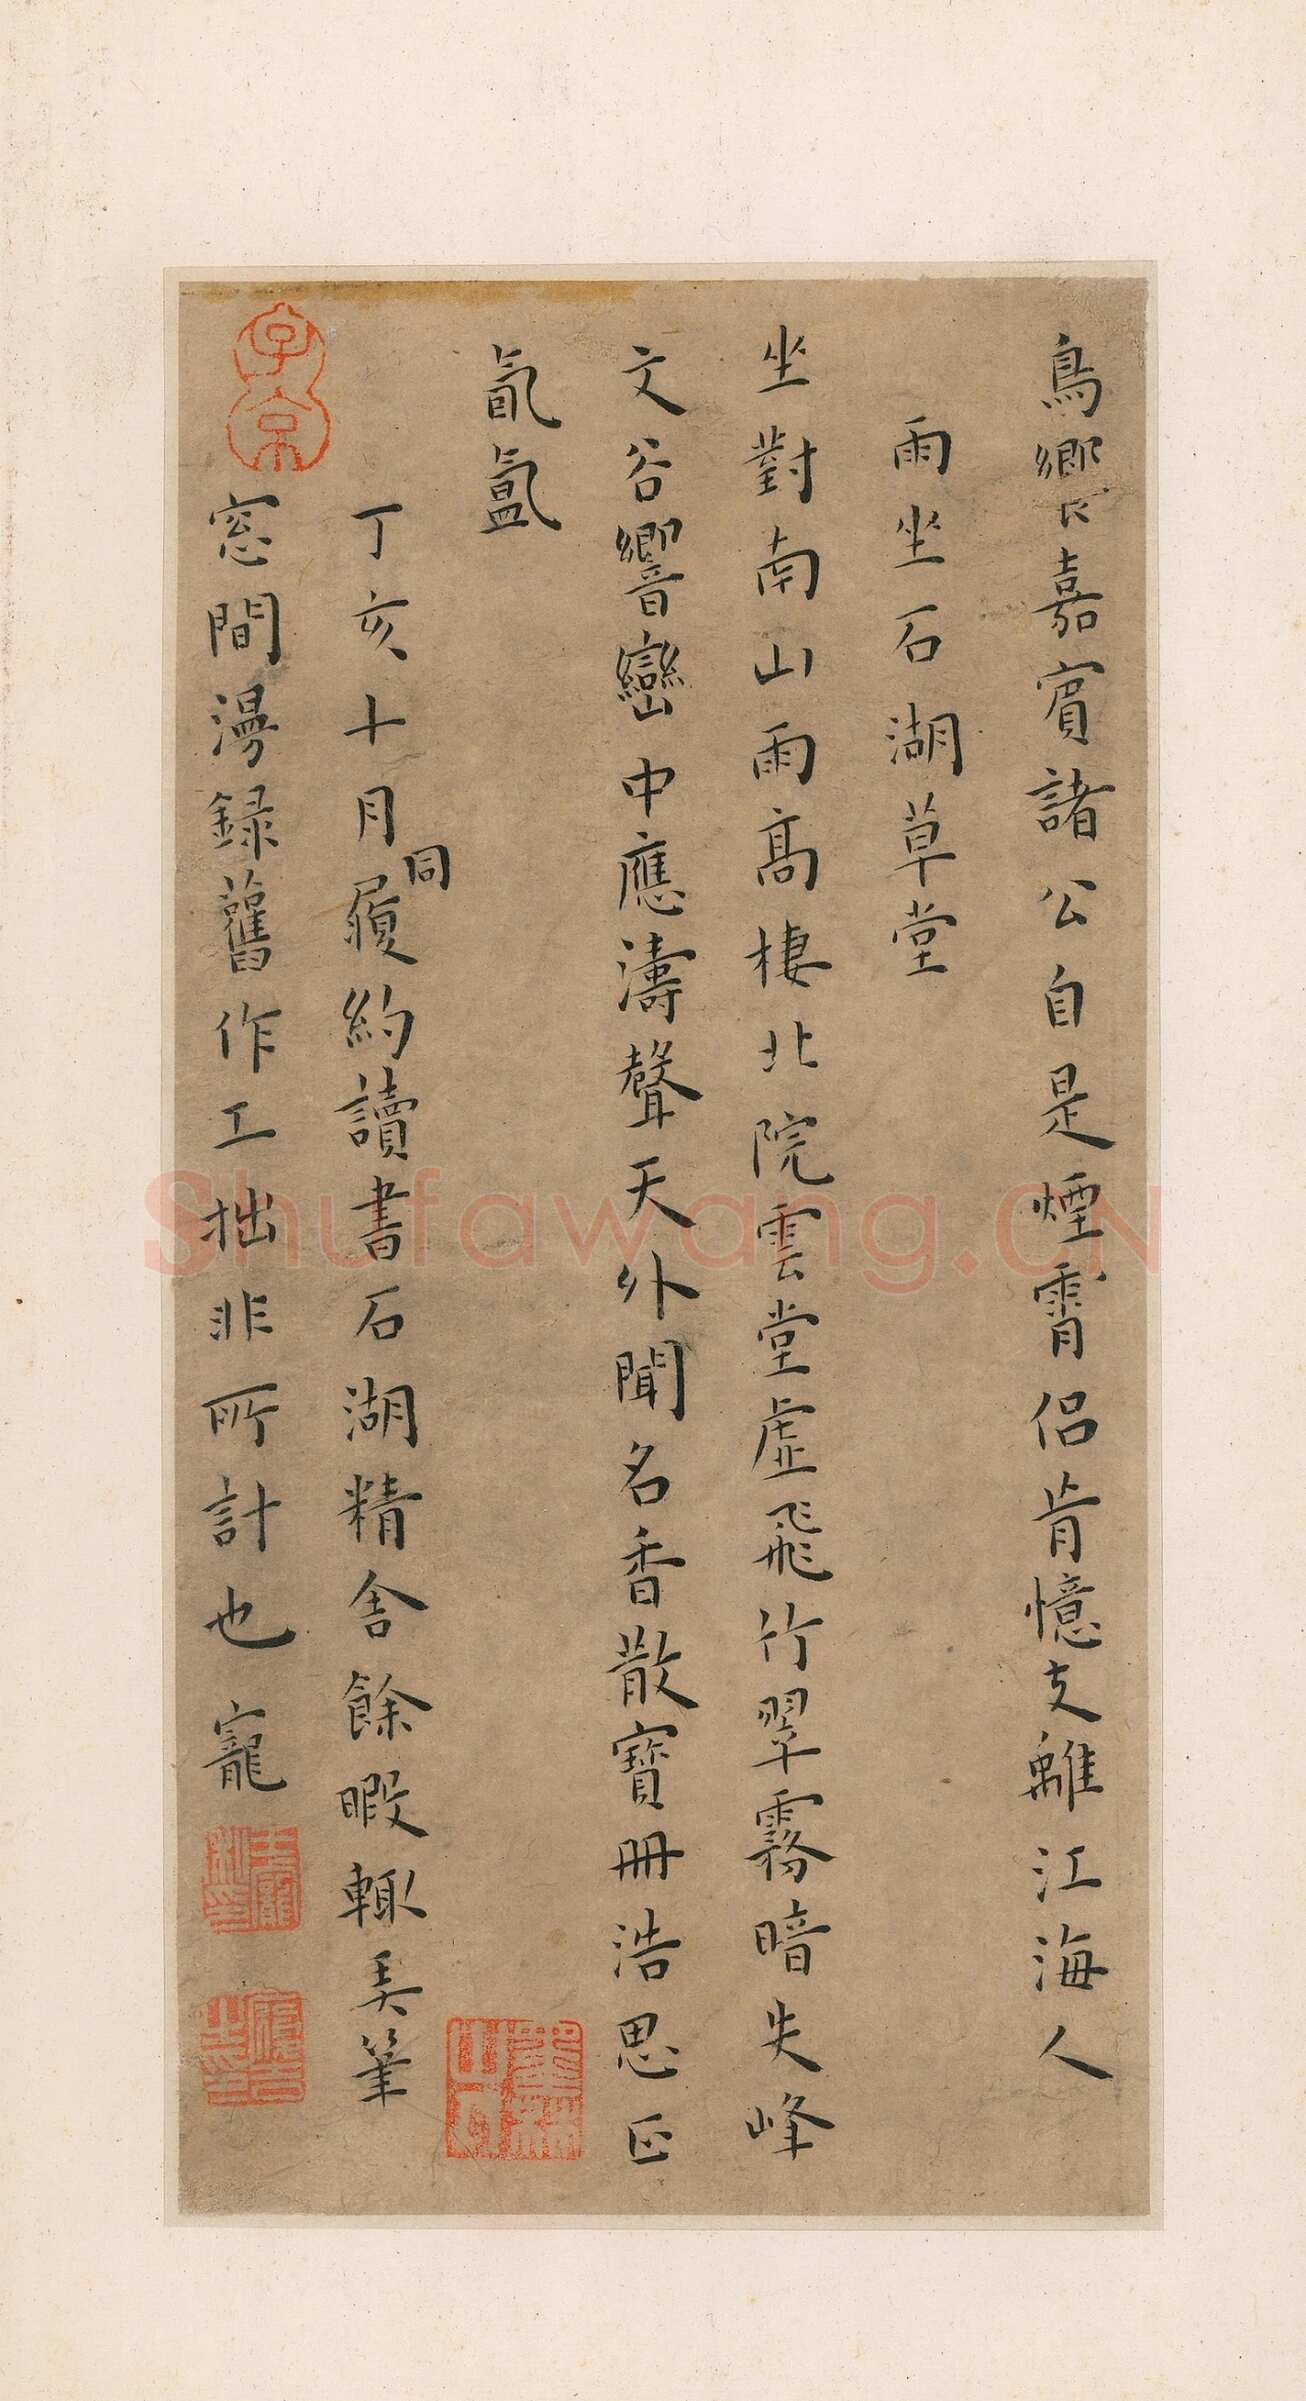 鳥響嘉賓諸公自是煙霄侶肯憶支離江海人
雨坐石湖草堂
坐對南山雨高棲北院雲堂虛飛竹翠霧暗失峰
文谷響巒中應濤聲天外聞名香散寶冊浩思正
氤氳
丁亥十月同履約讀書石湖精舍餘暇輒弄筆
窓間漫錄舊作工拙非所計也 寵
子京
墨林山人
王寵
履吉
Shufawang.CN